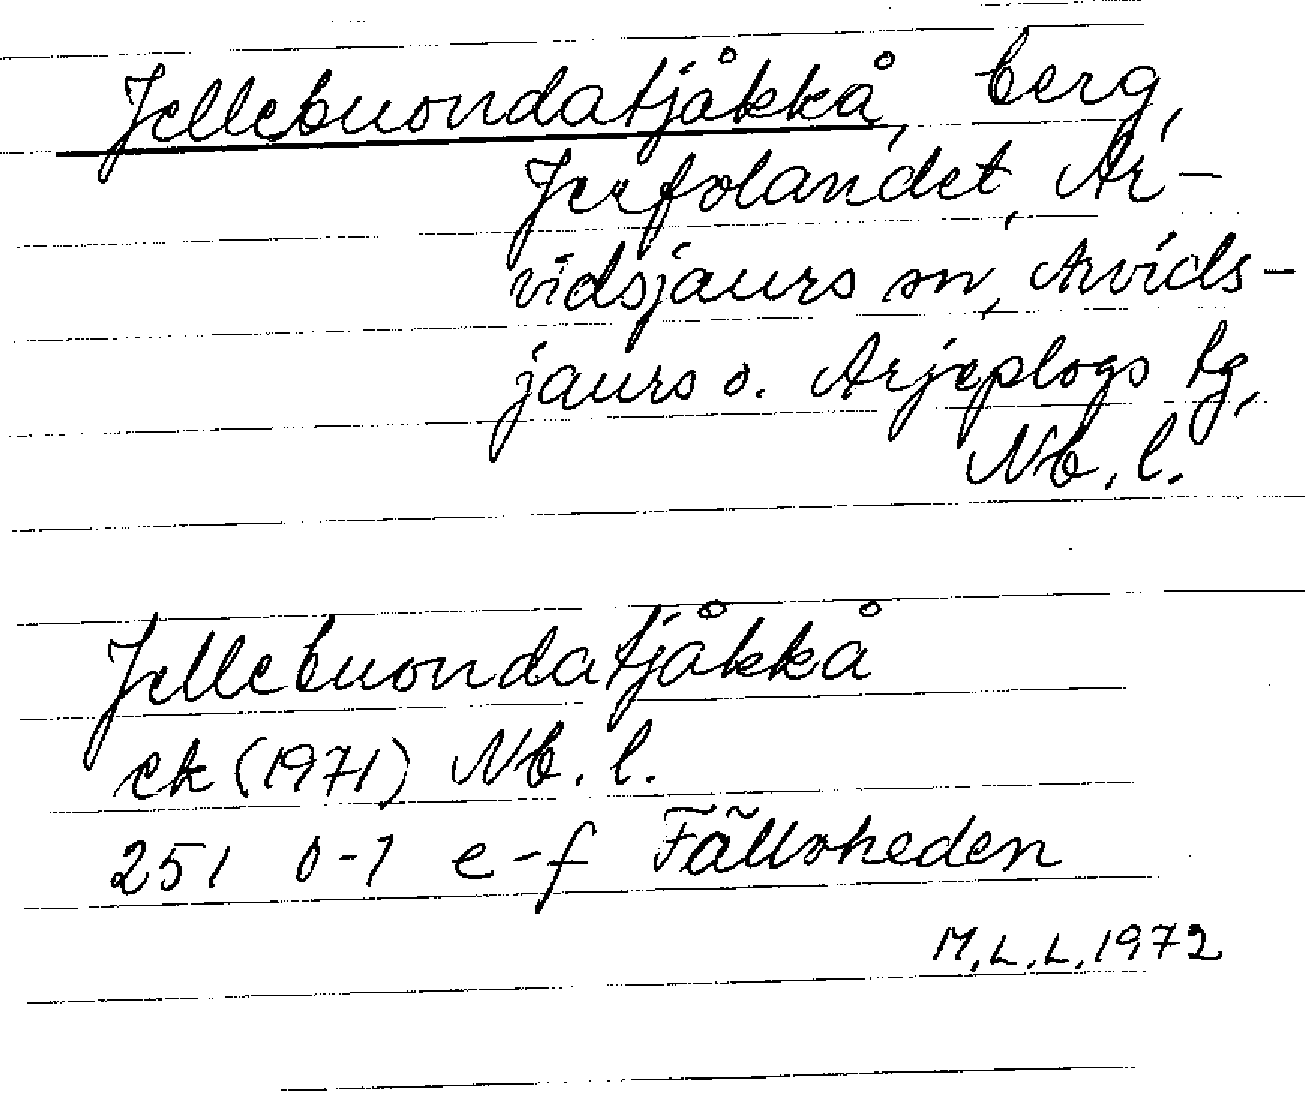 Jellebuondatjåkkå, berg,
Jerfolandet, Ar-
vidsjaurs sn, Arvids-
jaurs o. Arjeplogs tg,
Nb. l.
Jellebuondatjåkkå
ek (1971) Nb. l.
251 0-1 e-f Fälloheden
M.L.L. 1972